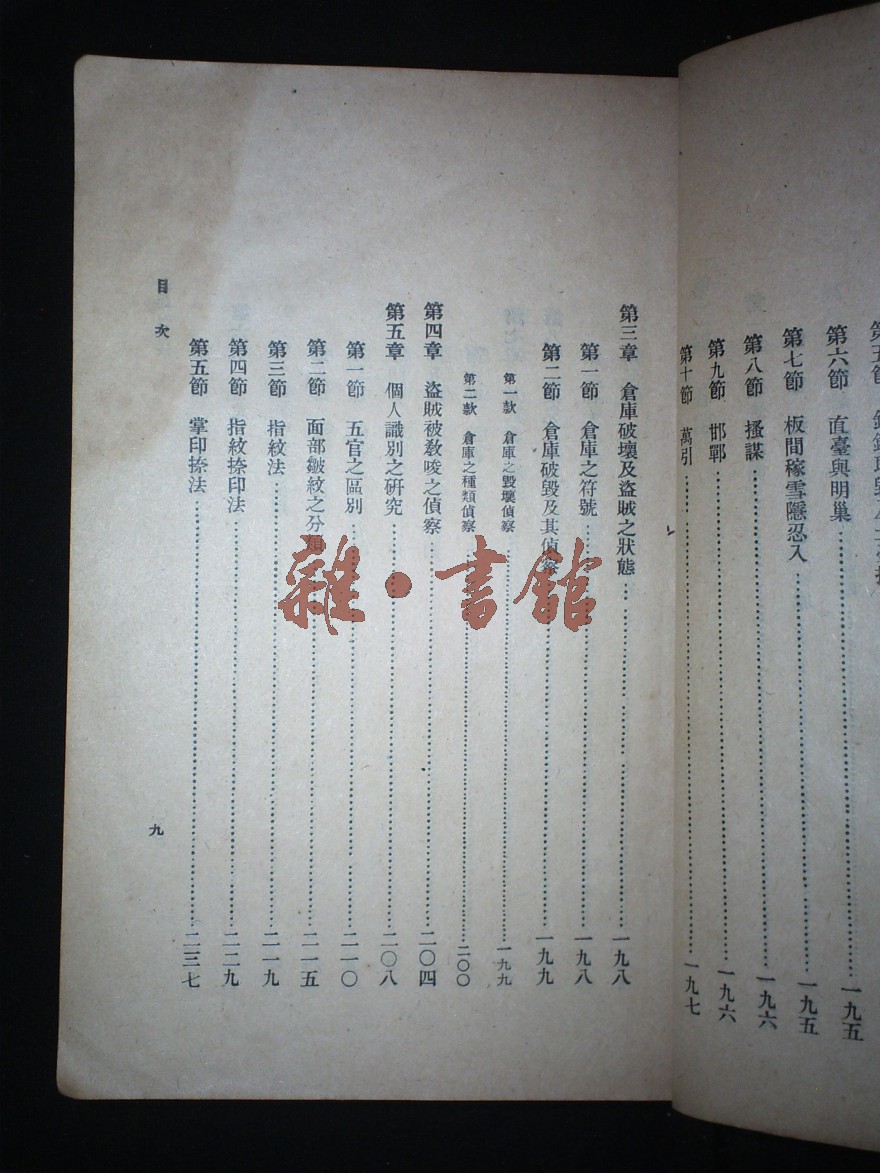 第六節 直臺與明巢 一九五
第七節 板間稼雪隱忍入 一九五
第八節 搔謀 一九六
第九節 邯鄲 一九六
第十節 萬引 一九七
第三章 倉庫破壞及盜賊之狀態 一九八
第一節 倉庫之符號 一九八
第二節 倉庫破毀及其偵察 一九九
第一款 倉庫之毀壞偵察 一九九
第二款 倉庫之種類偵察 二〇〇
第四章 盜賊被教唆之偵察 二〇四
第五章 個人識別之研究 二〇八
第一節 五官之區別 二一〇
第二節 面部皺紋之分類 二一五
第三節 指紋法 二一九
第四節 指紋捺印法 二二九
第五節 掌印捺法 二三七
目次
九
雜·書館